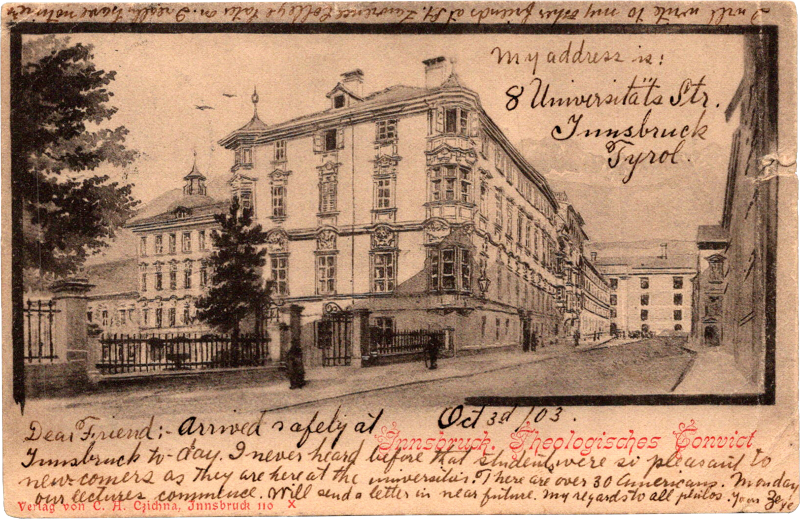 I will write to my other friends at St. Lawrence College later on. I really have not time
My address is:
8 Universitäts Str.
Innsbruck
Tyrol.
Dear Friend:- Arrived safely at Oct 3d/03.
Innsbruck, Theologisches Convict
Innsbruck to-day. I never heard before that students were so pleasant to
new comers as they are here at the universitäs. There are over 30 Americans. Monday
our lectures commence. Will send a letter in near future. My regards to all philos. Your
Verlag von C. H. Czichna, Innsbruck 110 X